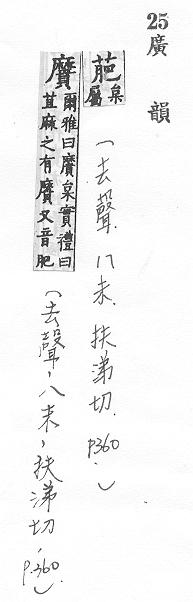 25廣韻
萉枲屬(去聲八未,扶涕切.P360.)
黂爾雅曰黂枲實禮曰苴麻之有黂又音肥(去聲,八未,扶涕切,P.360.)